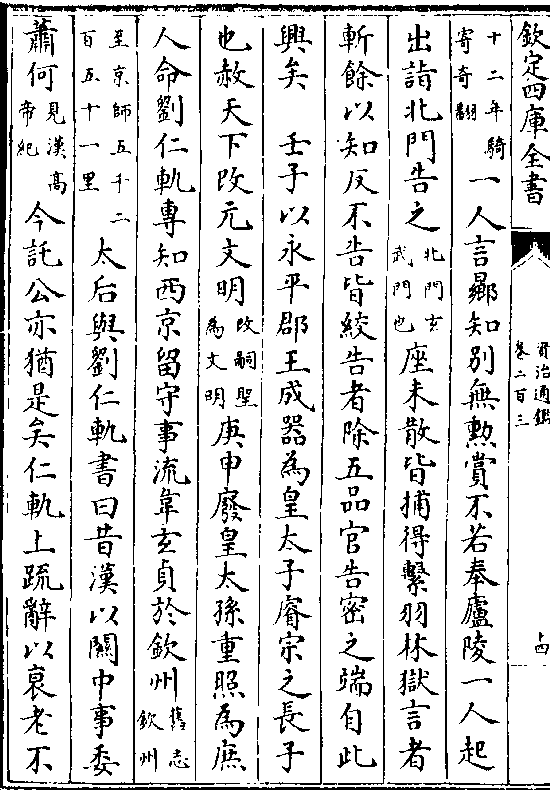 欽定四庫全書
資治通鑑
卷二百三
十四
十二年騎
寄奇翻
一人言曏知別無勲賞不若奉廬陵一人起
出詣北門告之
北門玄
武門也
座未散皆捕得繫羽林獄言者
斬餘以知反不告皆絞告者除五品官告密之端自此
興矣 壬子以永平郡王成器為皇太子睿宗之長子
也赦天下改元文明
改嗣聖
為文明
庚申廢皇太孫重照為庶
人命劉仁軌專知西京留守事流韋玄貞於欽州
舊志
欽州
至京師五千二
百五十一里
太后與劉仁軌書曰昔漢以關中事委
蕭何
見漢高
帝紀
今託公亦猶是矣仁軌上疏辭以衰老不